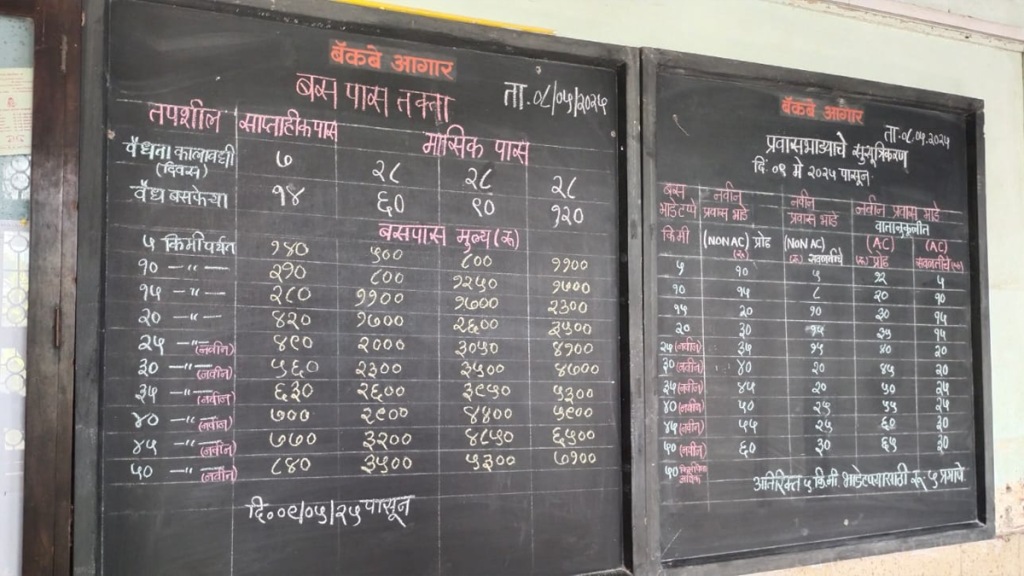 बॅकबे आगार
बस पास तक्ता ता.०८/०५/२०२५
तपशील साप्ताहीक पास मासिक पास
वैधता कालावधी (दिवस) ७ २८ २८ २८
वैध बसफेऱ्या १४ ६० ९० १२०
बसपास मूल्य (रू)
५ किमी पर्यंत १४० ५०० ८०० ११००
१० —"— २१० ८०० १२५० १७००
१५ —"— २८० ११०० १७०० २३००
२० —"— ४२० १७०० २६०० ३५००
२५ —"— (नवीन) ४९० २००० ३०५० ४१००
३० —"— (नवीन) ५६० २३०० ३५०० ४७००
३५ —"— (नवीन) ६३० २६०० ३९५० ५३००
४० —"— (नवीन) ७०० २९०० ४४०० ५९००
४५ —"— (नवीन) ७७० ३२०० ४८५० ६५००
५० —"— (नवीन) ८४० ३५०० ५३०० ७१००
दि.०९/०५/२५ पासून
बॅकबे आगार
ता.०८.०५.२०२५
प्रवासभाड्याचे सुसूत्रिकरण
दि. ०९ मे २०२५ पासून
बस नवीन नवीन नवीन प्रवास भाडे
भाडेटप्पे प्रवास भाडे प्रवास भाडे वातानुकूलीत
किमी (NON AC) प्रौढ (NON AC) (AC) (AC)
(रू) (रू) सवलतीचे (रू) प्रौढ सवलतीचे (रू)
५ १० ५ १२ ५
१० १५ ८ २० १०
१५ २० १० ३० १५
२० ३० १५ ३५ १५
२५ (नवीन) ३५ १५ ४० २०
३० (नवीन) ४० २० ४५ २०
३५ (नवीन) ४५ २० ५० २५
४० (नवीन) ५० २५ ५५ २५
४५ (नवीन) ५५ २५ ६० ३०
५० (नवीन) ६० ३० ६५ ३०
५० अतिरिक्त ५ किमी भाडेटप्यासाठी रू ५ प्रमाणे